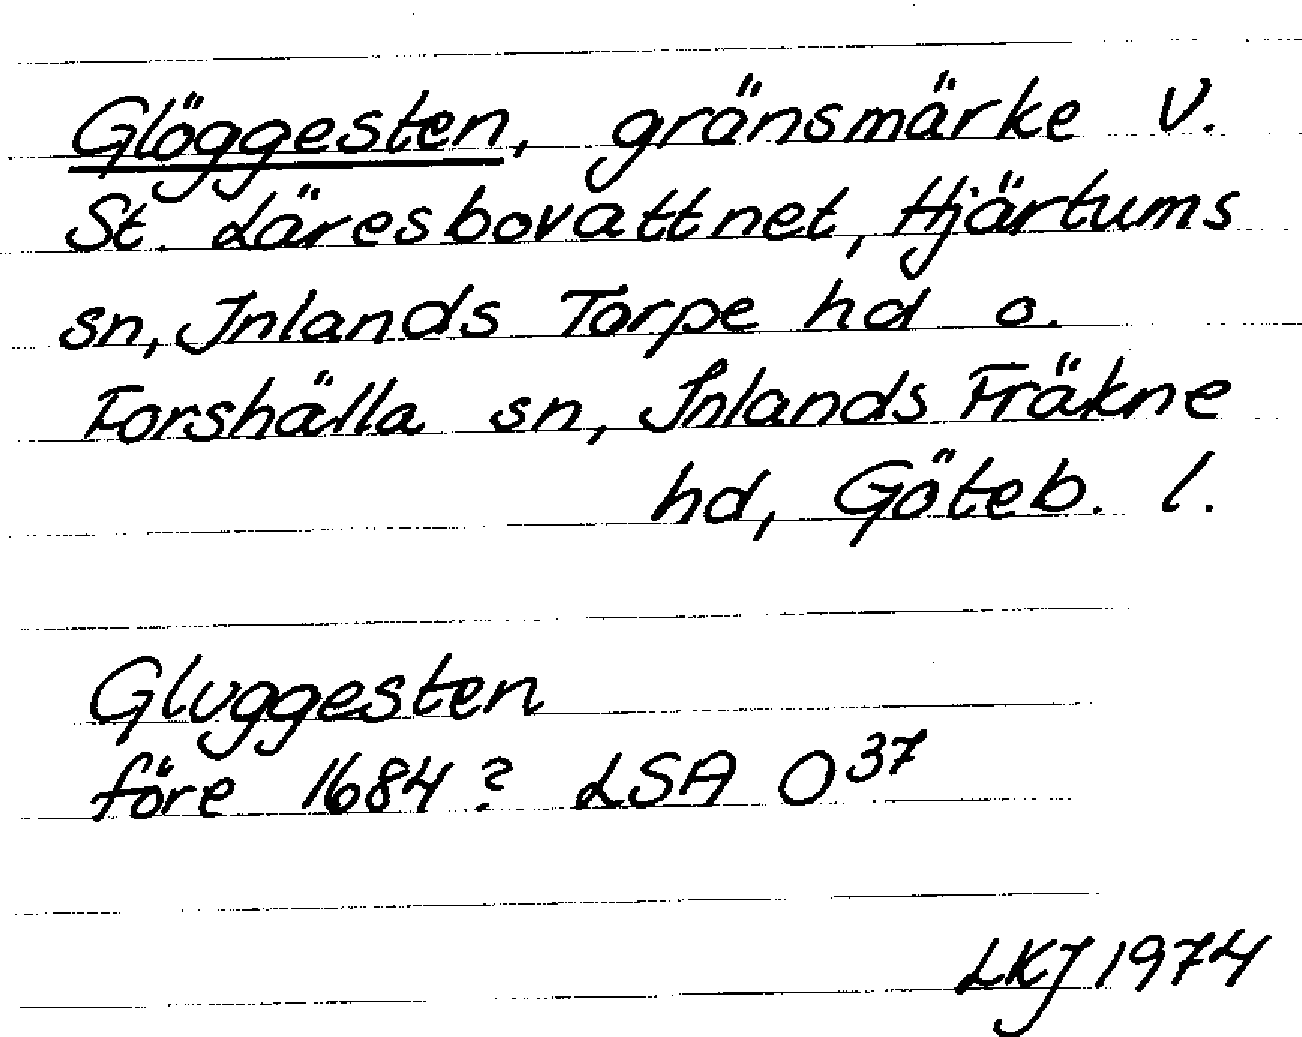 Glöggesten, gränsmärke v.
St. Läresbovattnet, Hjärtums
sn, Inlands Torpe hd o.
Forshälla sn, Inlands Fräkne
hd, Göteb. l.
Gluggesten
före 1684? LSA O³⁷
LKJ 1974